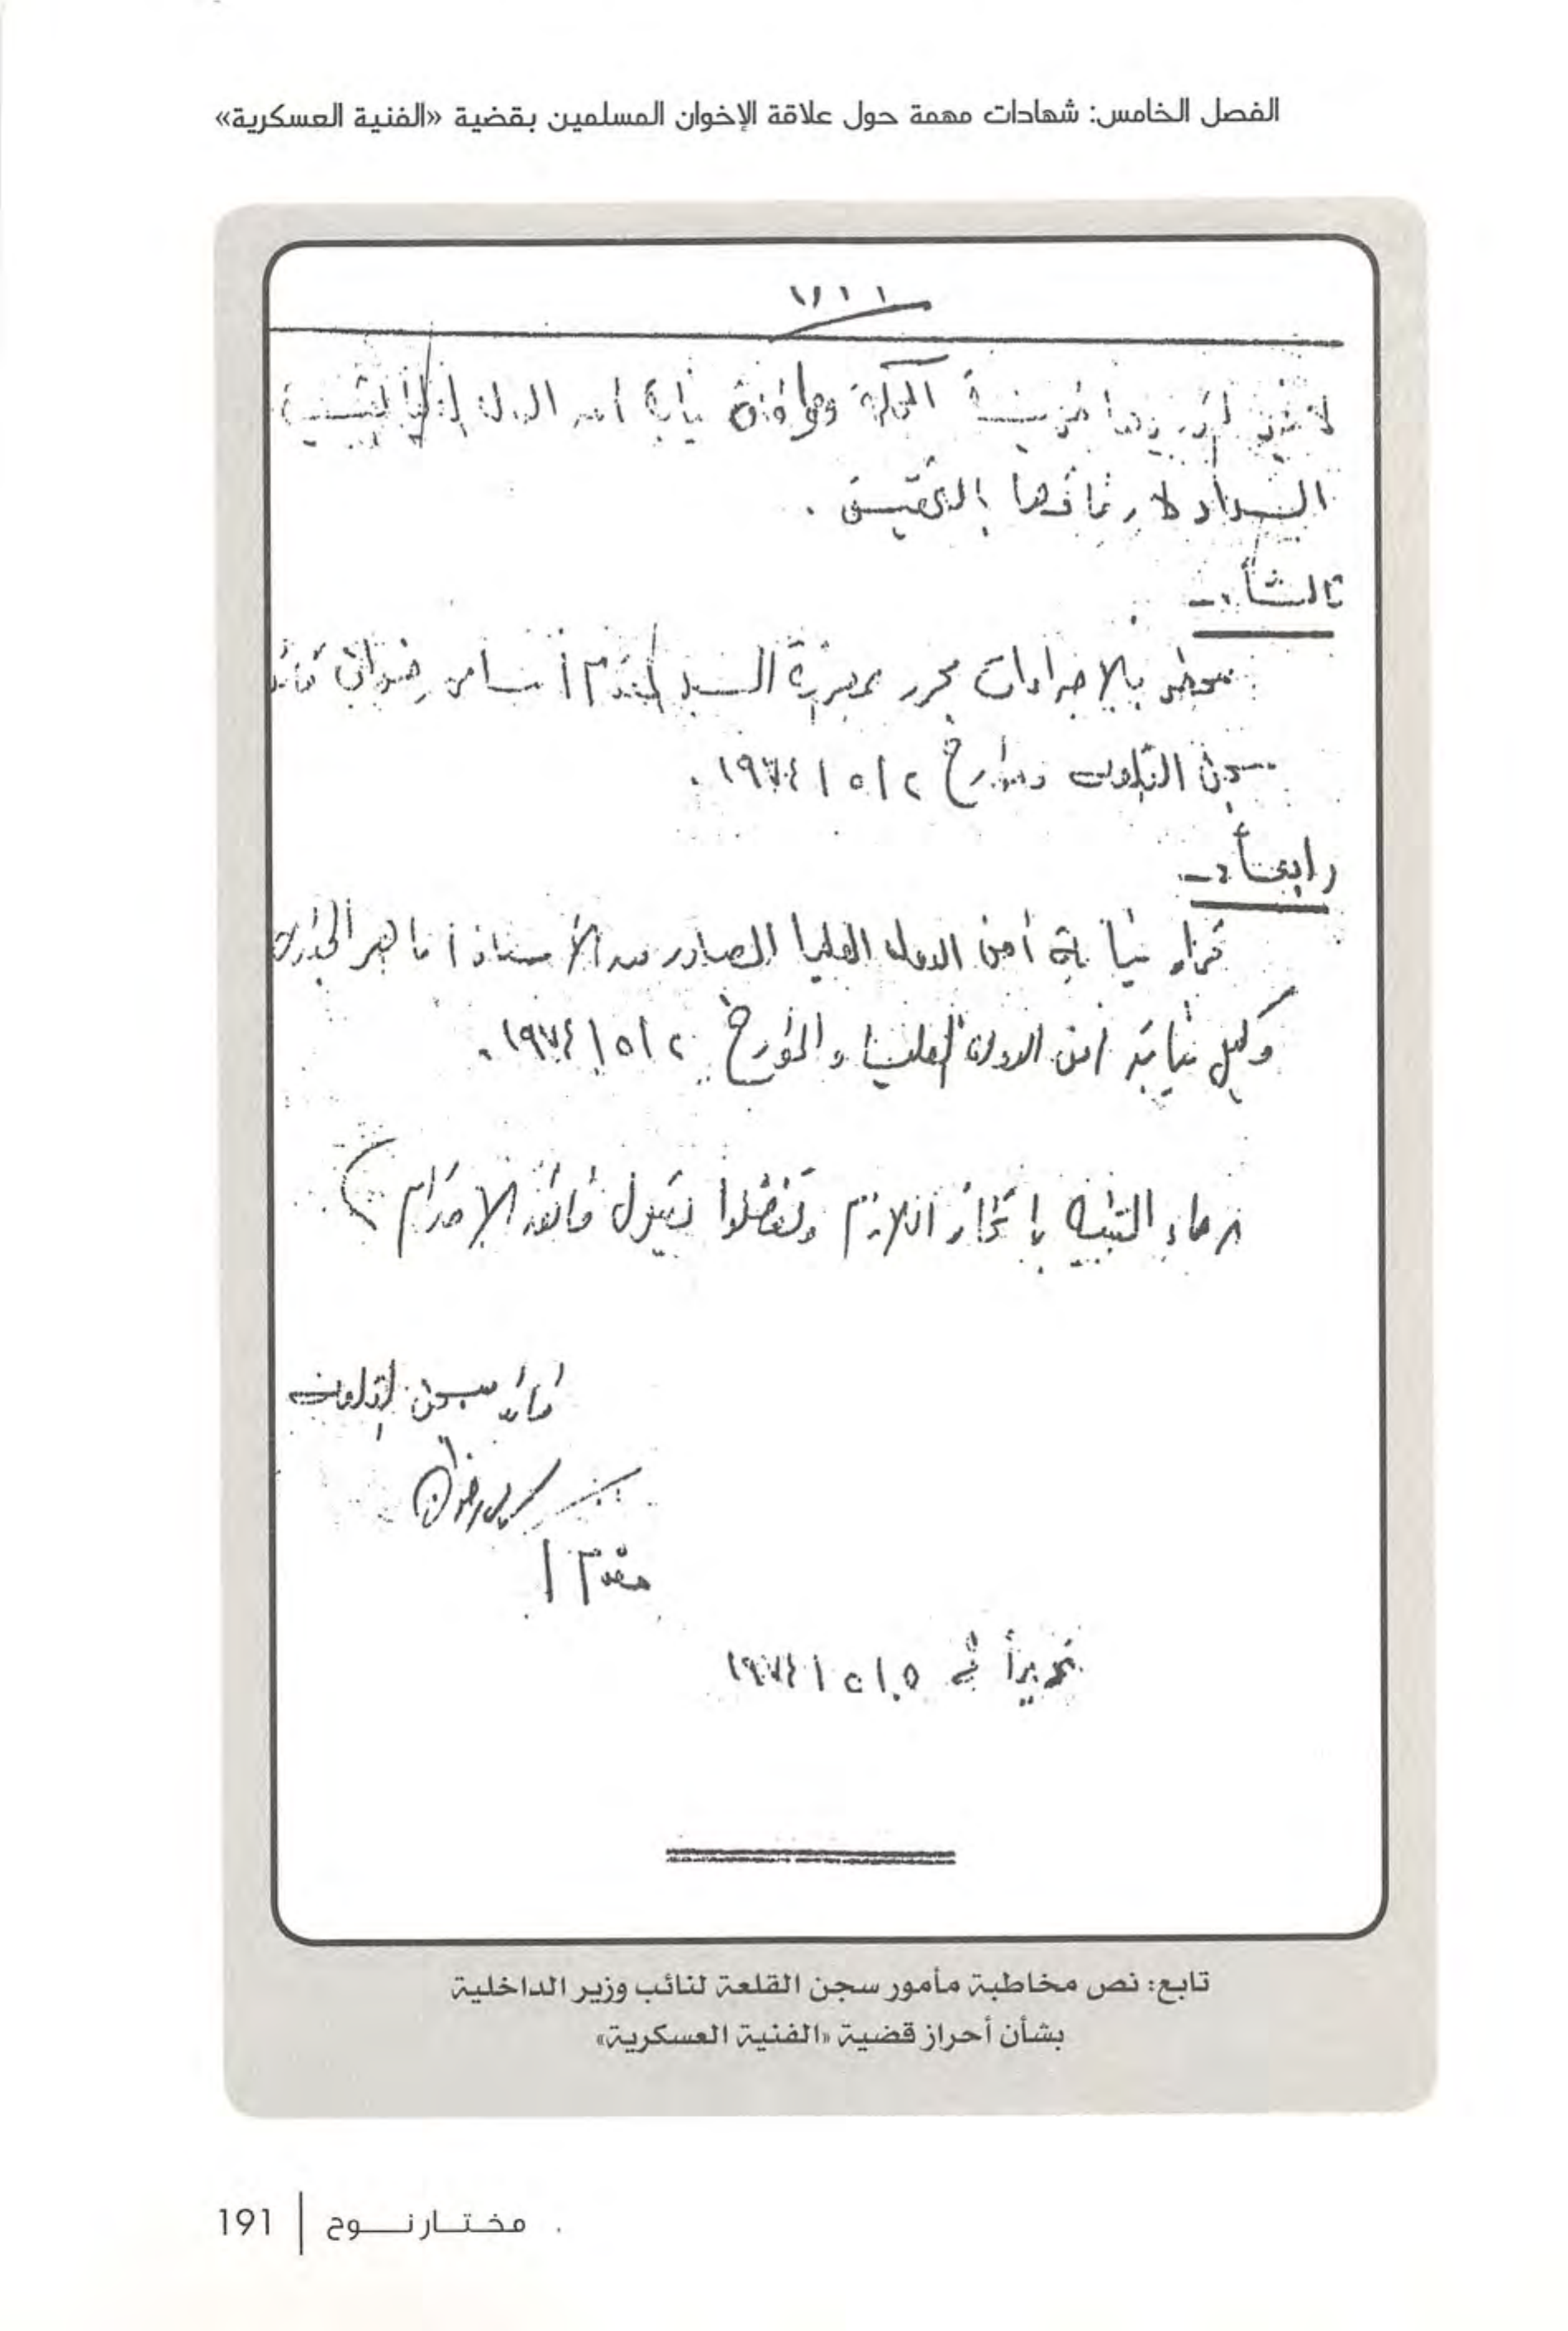 الفصل الخامس: شهادات مهمة حول علاقة الإخوان المسلمين بقضية «الفنية العسكرية»
لخزينة المحكمة وموافاة نيابة أمن الدولة العليا
السداد لارفاقها بالتحقيق .
ثالثاً :ـ
محضر بالإجراءات محرر بمعرفة السيد المقدم / سامى رضوان قائد
سجن القلعه ومؤرخ ٢ / ٥ / ١٩٧٤ .
رابعاً :ـ
قرار نيابة أمن الدولة العليا الصادر من الأستاذ / ماهر الجندى
وكيل نيابة أمن الدولة العليا والمؤرخ ٢ / ٥ / ١٩٧٤ .
برجاء التنبيه باتخاذ اللازم وتفضلوا بقبول فائق الإحترام
قائد سجن القلعه
مقدم /
تحريراً فى ٥ / ٥ / ١٩٧٤
تابع: نص مخاطبة مأمور سجن القلعة لنائب وزير الداخلية
بشأن أحراز قضية «الفنية العسكرية»
مختار نوح | 191